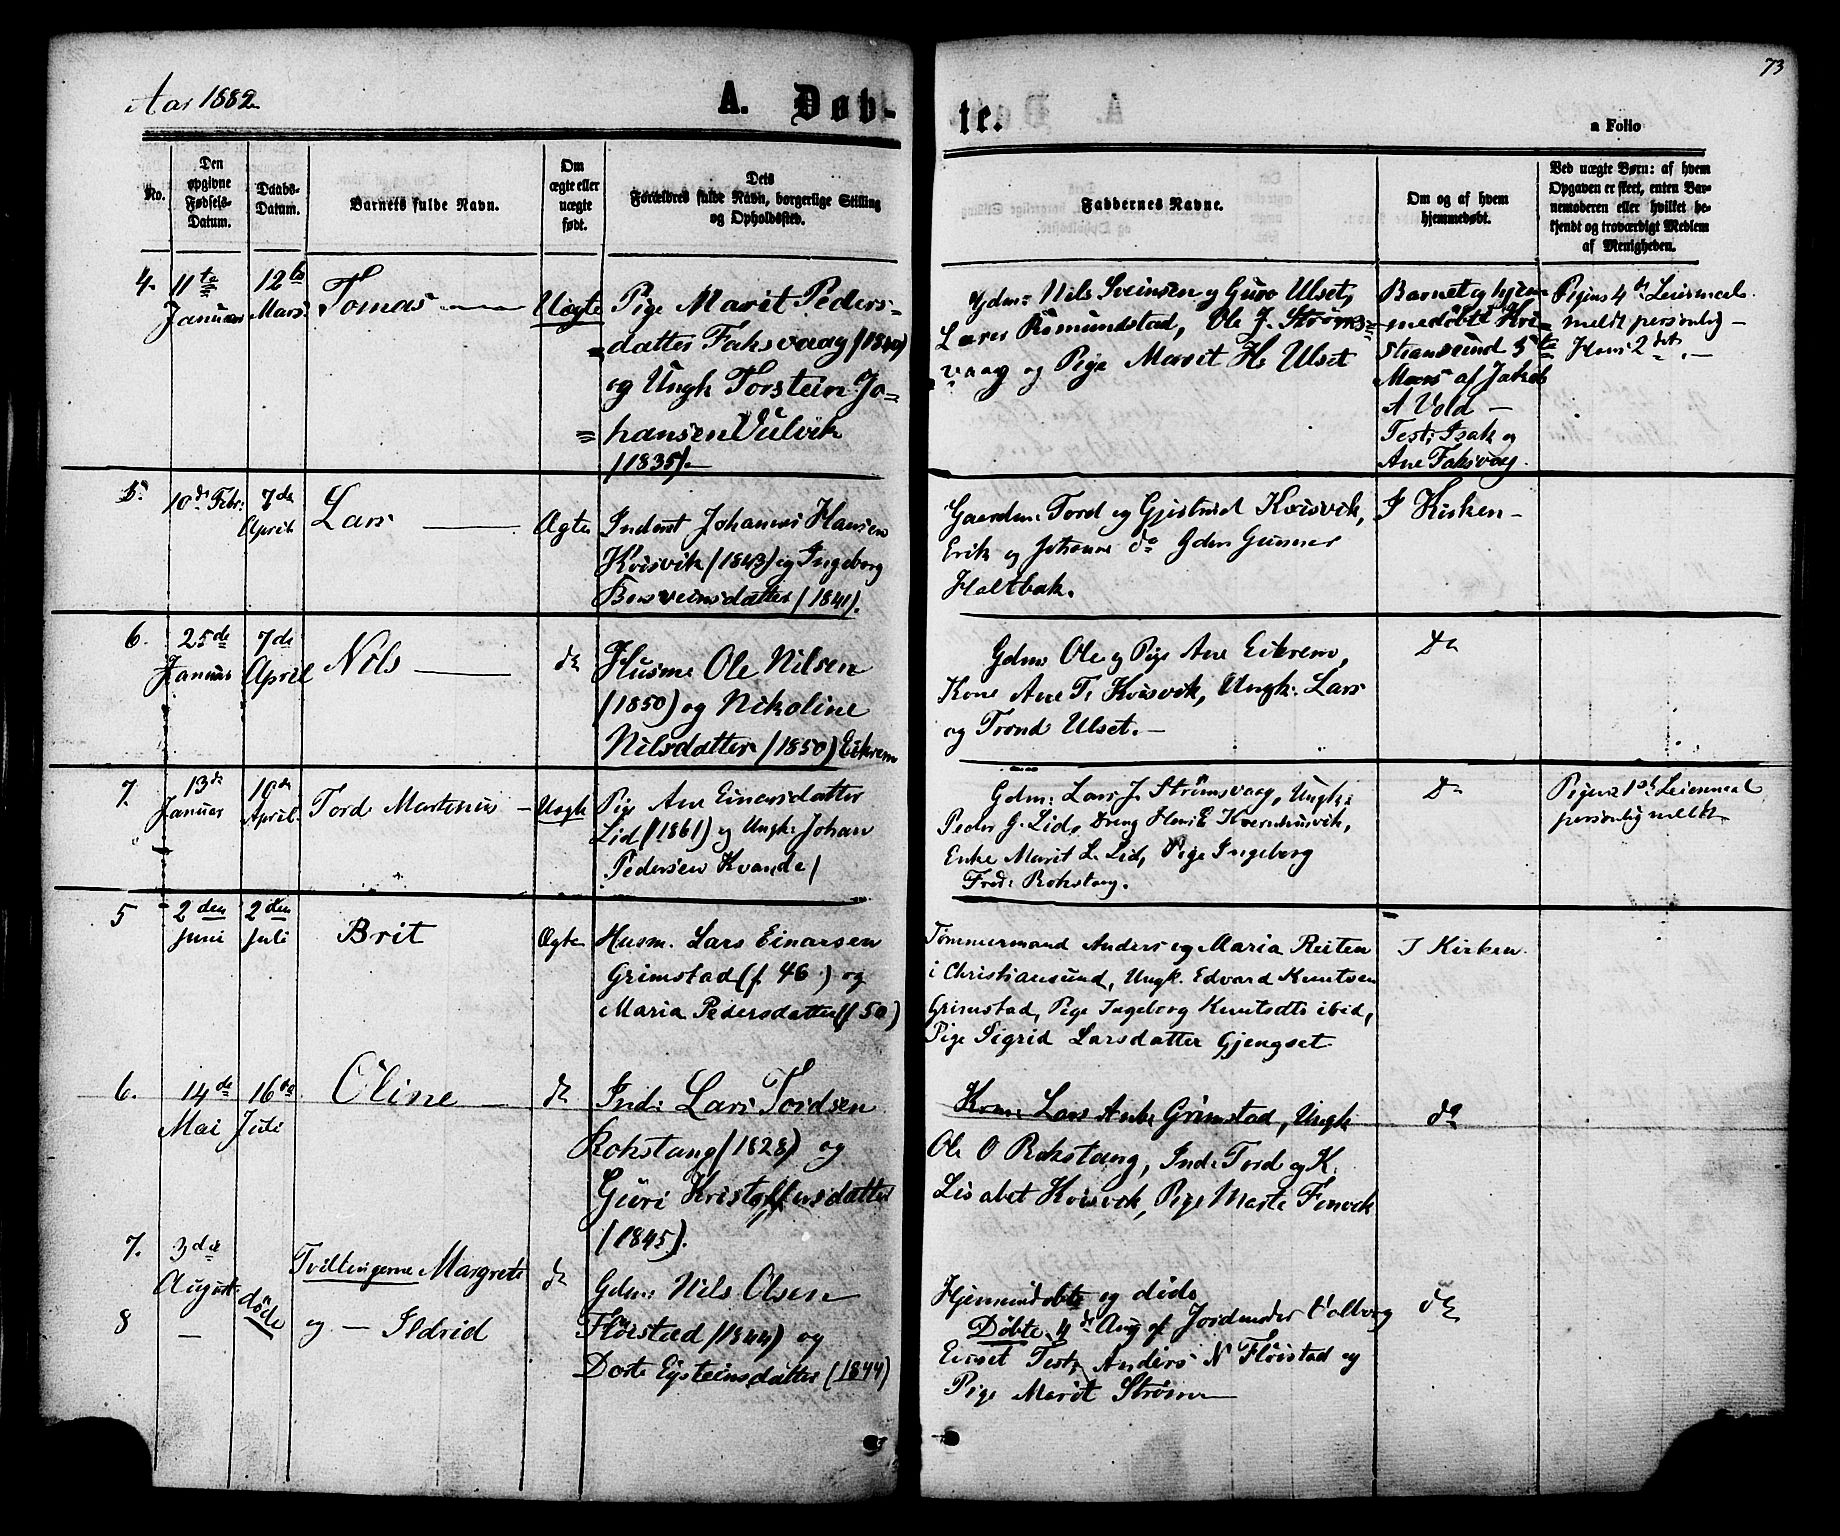 73
Aar 1882
A. Døb-
te.
a Folio
No.
Den
opgivne
Fødsels-
Datum.
Daabs-
Datum.
Barnets fulde Navn.
Om
ægte eller
uægte
født.
Dets
Forældres fulde Navn, borgerlige Stilling
og Opholdssted.
Faddernes Navne.
Om og af hvem
hjemmedøbt.
Ved uægte Børn: af hvem
Opgaven er skeet, enten Bar-
nemoderen eller hvilket be-
kjendt og troværdigt Medlem
af Menigheden.
4. 11te
Januar
12te
Mars
Tomas
Uægte
Pige Marit Peders-
datter Faksvaag (1840)
og Ungk Torstein Jo=
=hansen Vulvik
(1835).
Gdm: Nils Sveinsen og Guro Ulset,
Lærer Romundstad, Ole J. Strøms=
vaag og Pige Marit H. Ulset
Barnet og hjem
medøbt Kri=
stiansund 5te
Mars af Jakob
A Vold -
Test: Isak og
Ane Faksvaag.
Pigens 4de Leiermaal
meldt personlig -
Hans 2det. -
5. 10de Febr:
7de
April
Lars
Ægte
Inderst Johannes Hansen
Kvisvik (1843) og Ingeborg
Bosveinsdatter (1841).
Gaardm: Tord og Gjertrud Kvisvik,
Erik og Johanne do Gdm Gunner
Holtbak.
I Kirken -
6. 25de
Januar
7de
April
Nils
do
Husm Ole Nilsen
(1850) og Nikoline
Nilsdatter (1850) Eikrem
Gdm Ole og Pige Ane Eikrem,
Kone Ane T. Kvisvik, Ungk. Lars
og Trond Ulset. -
Do
7. 13de
Januar
10de
April
Tord Martinus -
Uægte
Pige Ane Einarsdatter
Lid (1861) og Ungk: Johan
Pedersen Kvande/
Gdm: Lars J. Strømsvaag, Ungk:
Peder G. Lid, Dreng Henrik E Kvernhusvik,
Enke Marit L. Lid, Pige Ingeborg
Fred: Rokstang.
Do
Pigens 1ste Leiermaal
personlig meldt
5 2den
Juni
2den
Juli
Brit
Ægte
Husm. Lars Einarsen
Grimstad (f. 46) og
Maria Pedersdatter (f 50)
Tømmermand Anders og Maria Reiten
i Christiansund, Ungk. Edvard Knutsen
Grimstad, Pige Ingeborg Knutsdtr ibid,
Pige Sigrid Larsdatter Gjengset
I Kirken.
6. 14de
Mai
16de
Juli
Oline
do
Ind: Lars Tordsen
Rokstang (1828) og
Guri Kristoffersdatter
(1845).
Lars Grimstad, Ungk
Ole O Rokstang, Ind: Tord og K.
Lisabet Kvisvik, Pige Marte Finvik
do
7. 3die
August
døde
8 -
Tvillingerne Margrete
og - Ildrid
do
Gdm: Nils Olsen
Fløistad (1844) og
Dorte Eysteinsdatter (1844)
Hjemmedøbte og døde
Døbte 4de Aug af Jordmoder Valborg
Test: Anders N Fløistad og
Pige Marit Strøm
do